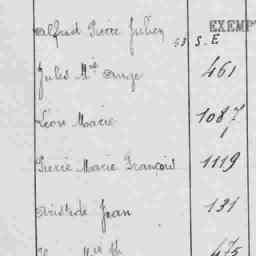 Alfred Pierre Julien
63 S. E
EXEMP
Jules Mie Ange 461
Léon Marie 1087
1
Pierre Marie François 1119
Aristide Jean 131
475